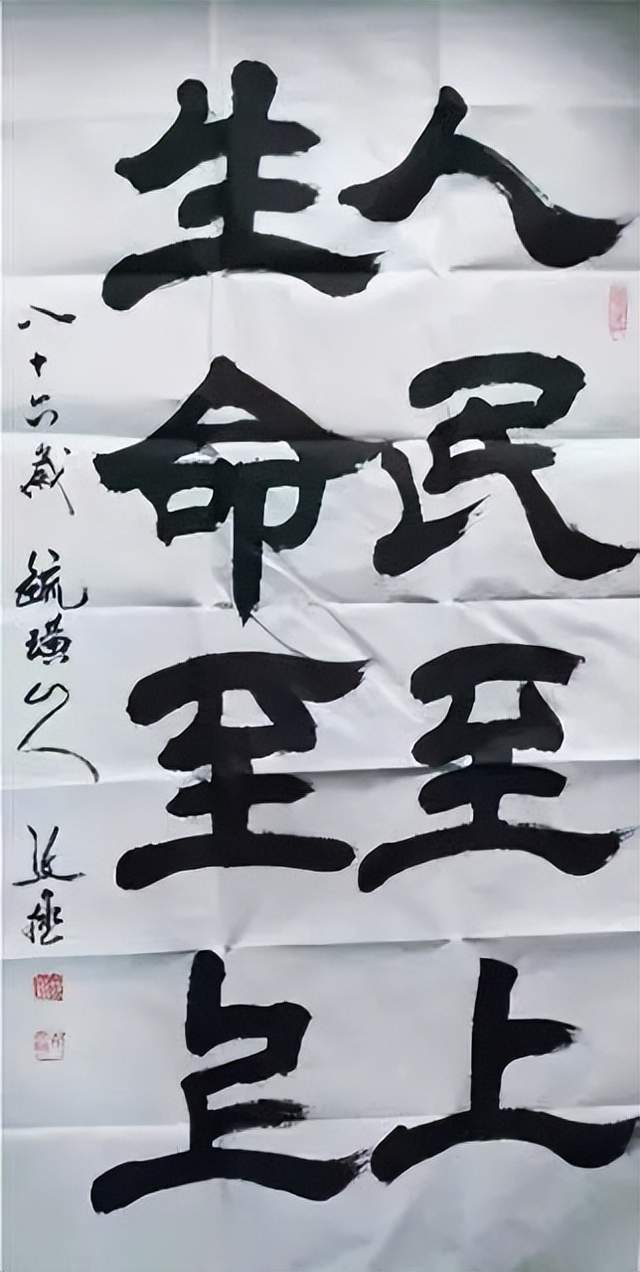 人民至上
生命至上
八十六岁 璜山人